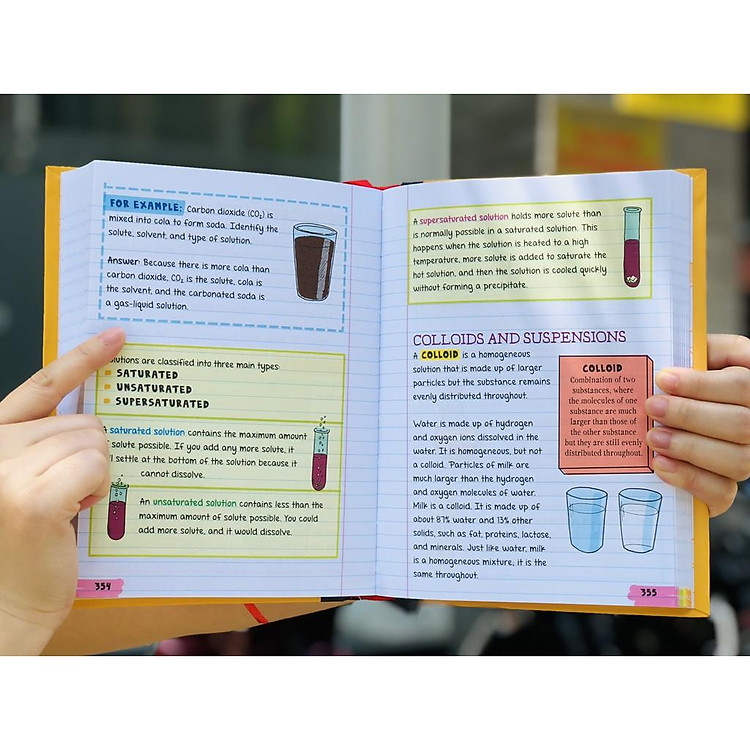 FOR EXAMPLE: Carbon dioxide (CO₂) is
mixed into cola to form soda. Identify the
solute, solvent, and type of solution.
Answer: Because there is more cola than
carbon dioxide, CO₂ is the solute, cola is
the solvent, and the carbonated soda is
a gas-liquid solution.
olutions are classified into three main types:
SATURATED
UNSATURATED
SUPERSATURATED
A saturated solution contains the maximum amount
of solute possible. If you add any more solute, it
settle at the bottom of the solution because it
cannot dissolve.
An unsaturated solution contains less than the
maximum amount of solute possible. You could
add more solute, and it would dissolve.
354
A supersaturated solution holds more solute than
is normally possible in a saturated solution. This
happens when the solution is heated to a high
temperature, more solute is added to saturate the
hot solution, and then the solution is cooled quickly
without forming a precipitate.
COLLOIDS AND SUSPENSIONS
A COLLOID is a homogeneous
solution that is made up of larger
particles but the substance remains
evenly distributed throughout.
Water is made up of hydrogen
and oxygen ions dissolved in the
water. It is homogeneous, but not
a colloid. Particles of milk are
much larger than the hydrogen
and oxygen molecules of water.
Milk is a colloid. It is made up of
about 87% water and 13% other
solids, such as fat, proteins, lactose,
and minerals. Just like water, milk
is a homogeneous mixture; it is the
same throughout.
COLLOID
Combination of two
substances, where
the molecules of one
substance are much
larger than those of
the other substance
but they are still evenly
distributed throughout.
355